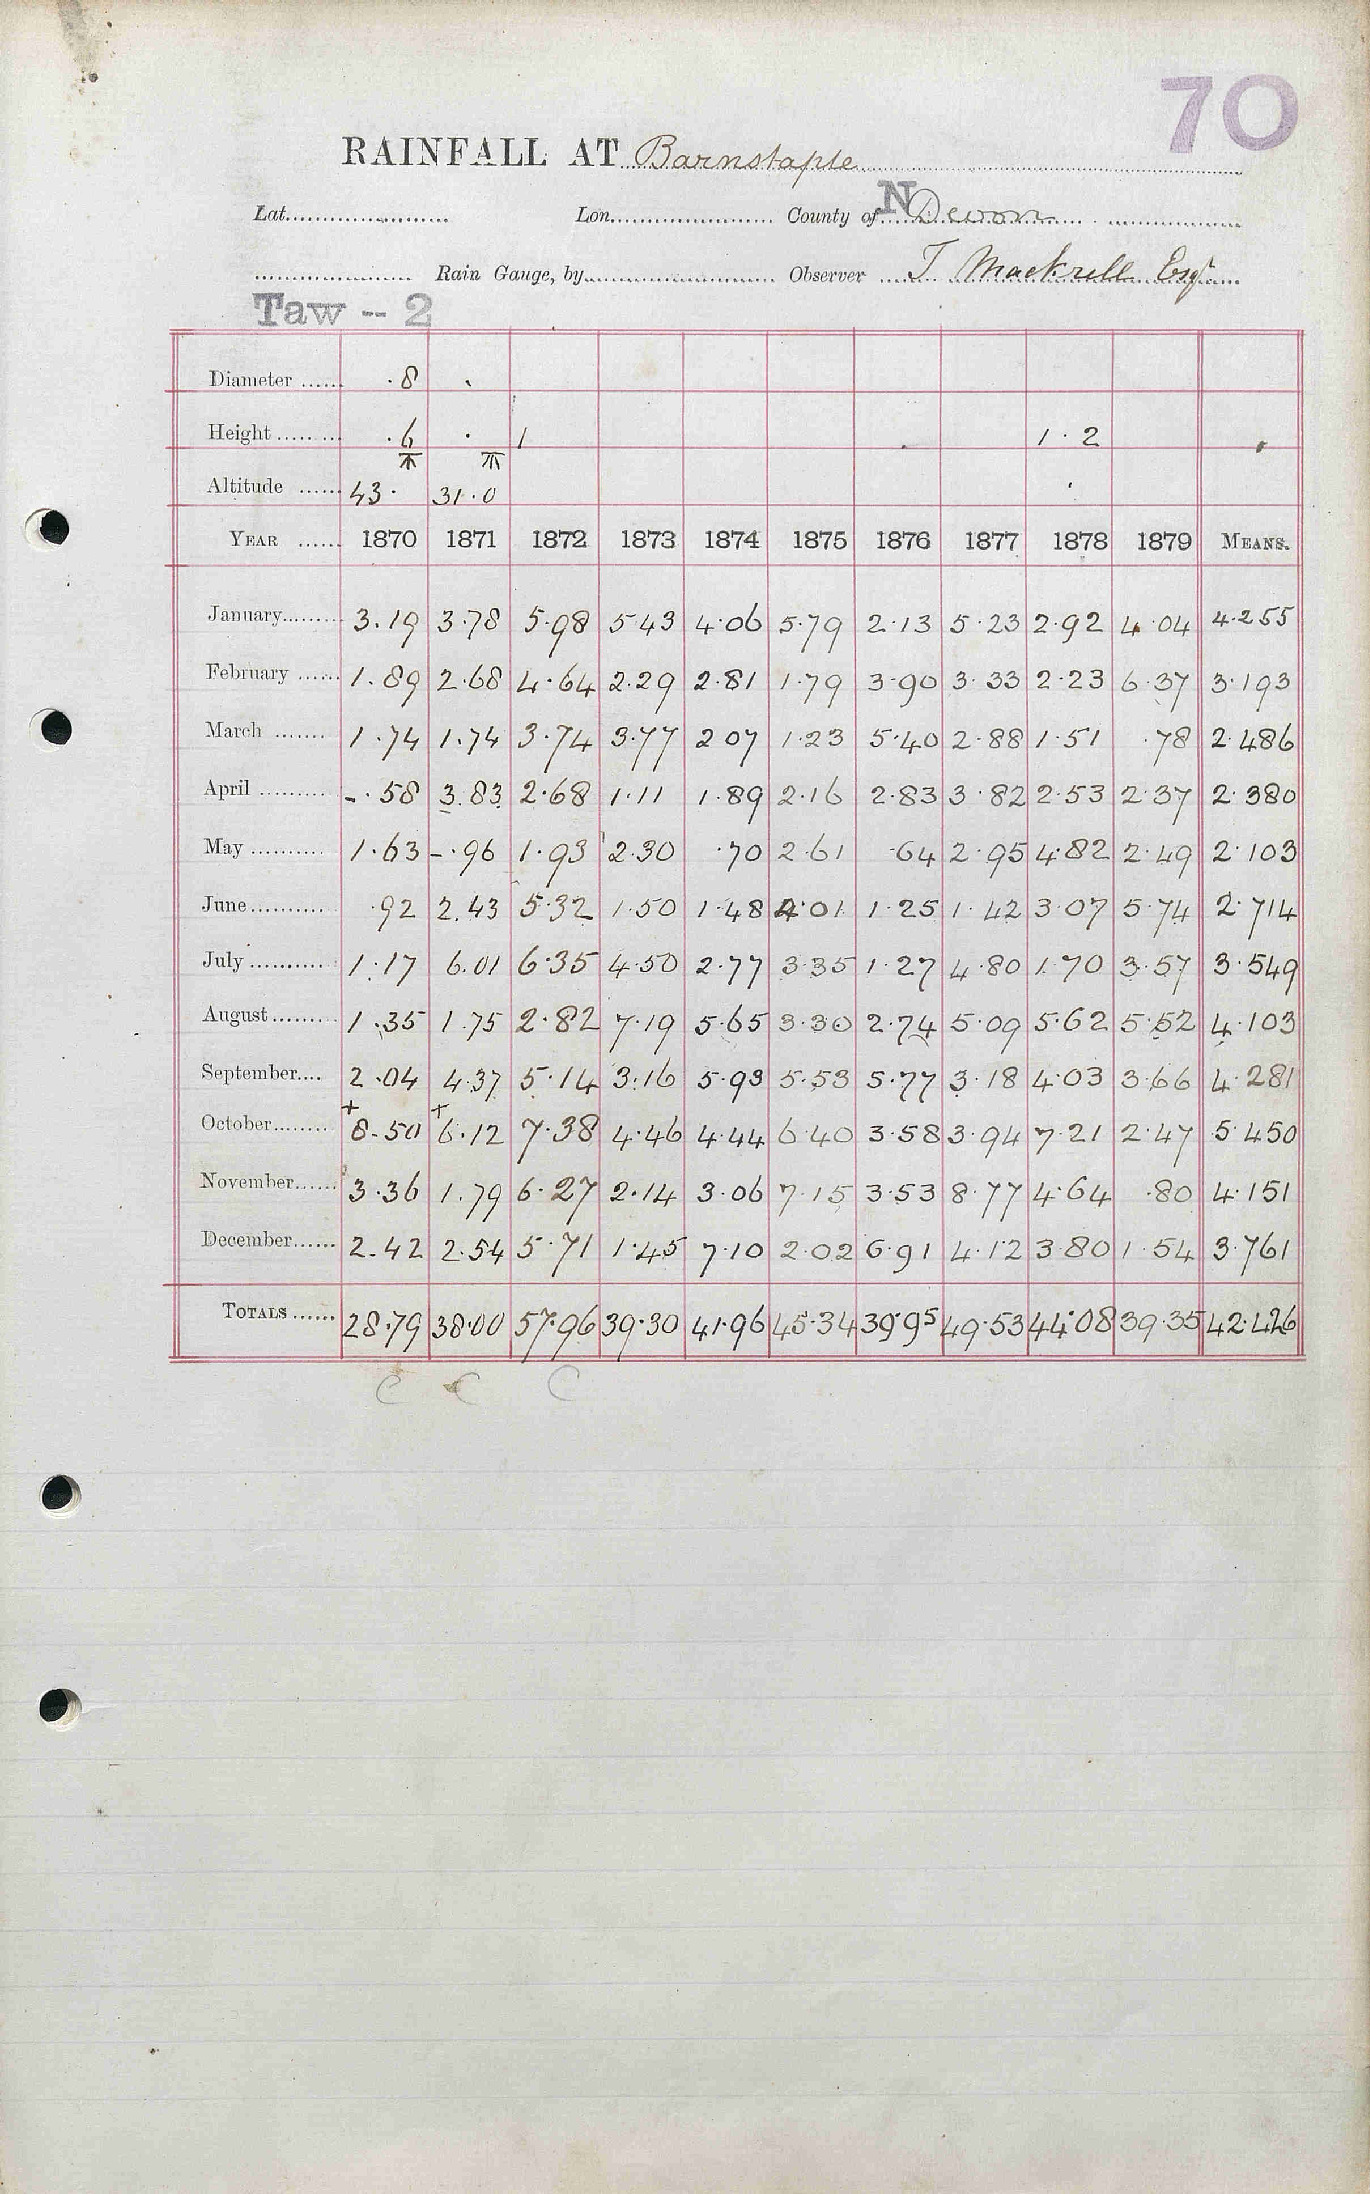 70
RAINFALL AT Barnstaple
Lat. Lon. County of N Devon
Rain Gauge, by Observer T Mackrell Esqr
Taw -- 2
Diameter ...... ·8 ·
Height ......... ·6 · 1 1·2
Altitude ...... 43· 31·0
YEAR ...... 1870 1871 1872 1873 1874 1875 1876 1877 1878 1879 MEANS.
January......... 3.19 3.78 5.98 5.43 4.06 5.79 2.13 5.23 2.92 4.04 4.255
February ...... 1.89 2.68 4.64 2.29 2.81 1.79 3.90 3.33 2.23 6.37 3.193
March ....... 1.74 1.74 3.74 3.77 2 07 1.23 5.40 2.88 1.51 .78 2.486
April ......... -.58 3.83 2.68 1.11 1.89 2.16 2.83 3.82 2.53 2.37 2.380
May .......... 1.63 -.96 1.93 2.30 .70 2.61 .64 2.95 4.82 2.49 2.103
June........... .92 2.43 5.32 1.50 1.48 4.01 1.25 1.42 3.07 5.74 2.714
July ........... 1.17 6.01 6.35 4.50 2.77 3.35 1.27 4.80 1.70 3.57 3.549
August......... 1.35 1.75 2.82 7.19 5.65 3.30 2.74 5.09 5.62 5.52 4.103
September.... 2.04 4.37 5.14 3.16 5.93 5.53 5.77 3.18 4.03 3.66 4.281
October........ + 8.50 + 6.12 7.38 4.46 4.44 6.40 3.58 3.94 7.21 2.47 5.450
November...... 3.36 1.79 6.27 2.14 3.06 7.15 3.53 8.77 4.64 .80 4.151
December...... 2.42 2.54 5.71 1.45 7.10 2.02 6.91 4.12 3.80 1.54 3.761
TOTALS ...... 28.79 38.00 57.96 39.30 41.96 45.34 39.95 49.53 44.08 39.35 42.426
C C C